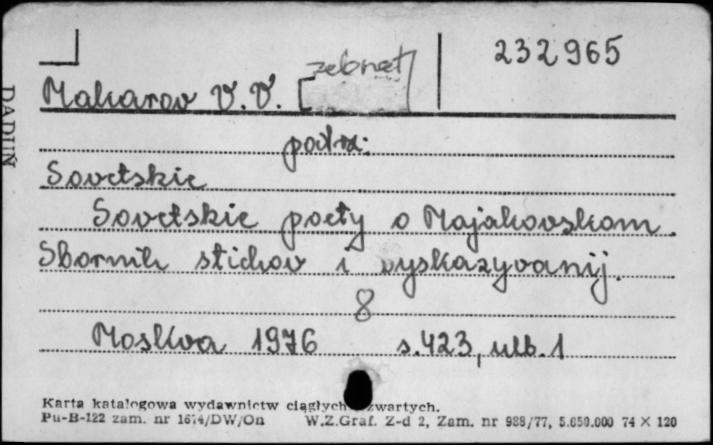 232965
Makarov V.V. [zebrał]
patrz:
Sovetskie
Sovetskie poety o Majakovskom.
Sbornik stichov i vyskazyvanij.
8
Moskva 1976 s. 423, nlb. 1
Karta katalogowa wydawnictw ciągłych zwartych.
Pu-B-122 zam. nr 1674/DW/On W.Z.Graf. Z-d 2, Zam. nr 988/77, 5.650.000 74 × 120
DADUŃ